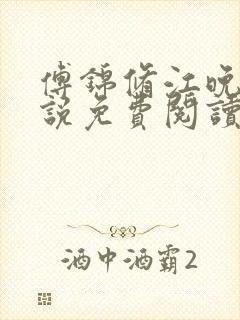 傅錦脩江晚
說免費閱讀
酒中酒霸2